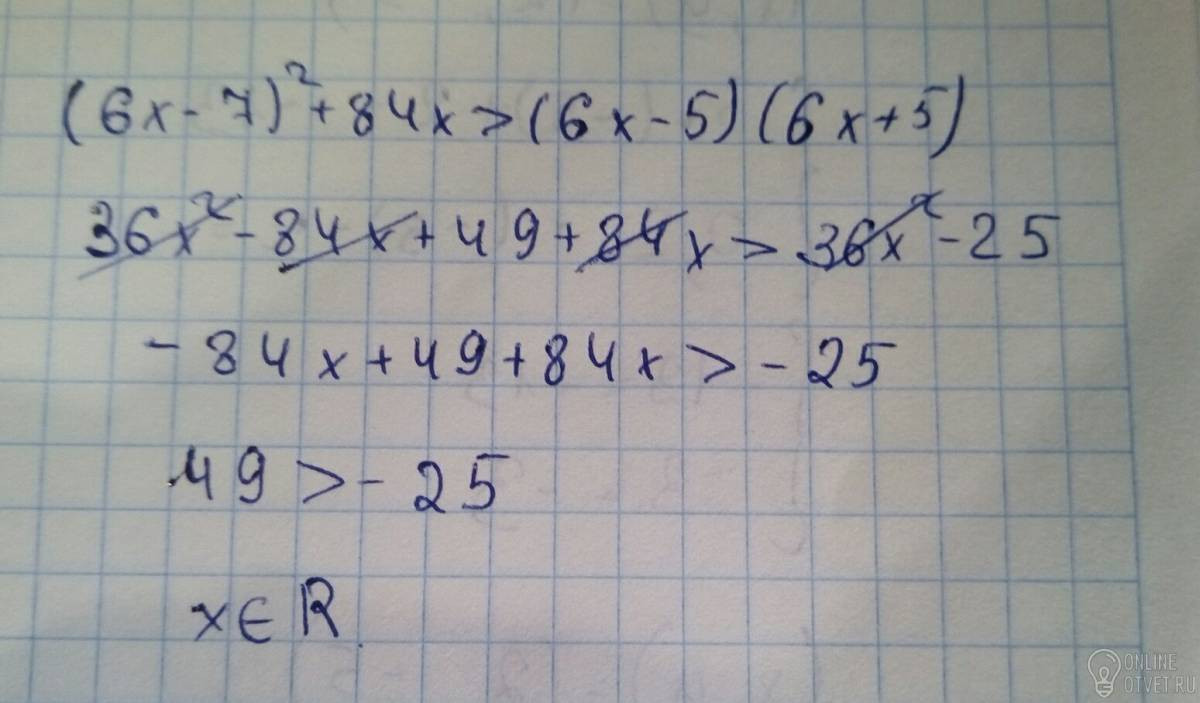 (6x-7)²+84x>(6x-5)(6x+5)
36x²-84x+49+84x>36x²-25
-84x+49+84x>-25
49>-25
x∈R
ONLINE
OTVET.RU